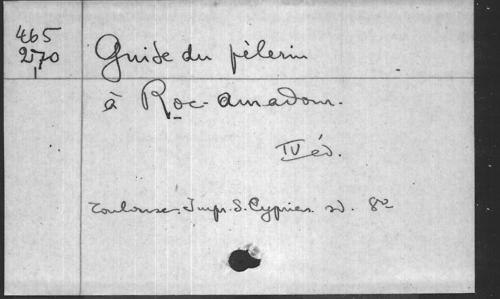 465
270
Guide du pèlerin
à Roc-Amadour.
IV éd.
Toulouse, Impr. S. Cyprien. sd. 8º